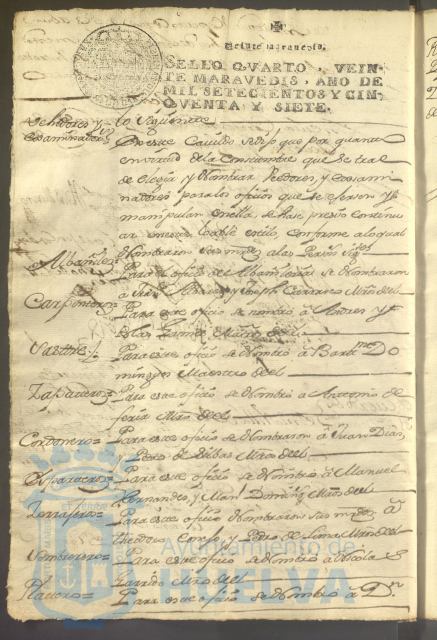 Veinte maravedis.
SELLO QVARTO, VEIN-
TE MARAVEDIS, AÑO DE
MIL SETECIENTOS Y CIN-
QVENTA Y SIETE.
Vehedores y
Examinadores
lo siguiente
En este Cavildo se dijo que por quanto
en virtud de la costumbre que se trae
de elegir y Nombrar Veedores, y examinadores
para los oficios que se
manipulan en ella, se hase preciso continuar
en este loable estilo, conforme a lo qual
Nombraron sus mrzdes a las Personas sigtes
Albañiles = Para el oficio de Albañileria se Nombraron
a Joseph Mros del
Carpinteros = Para este oficio se nombró a Andres y
Mros del
Sastre = Para este oficio se Nombró a Bartme Do
minguez Maestro del
Zapatero = Para este oficio se Nombró a Antonio de
feria Mro del
Cordonero = Para este oficio se Nombraron a Juan Dias,
y Pedro de Ribas Mros del
Esparteros = Para este oficio se Nombró a Manuel
Fernandes, y Man Domingz Mros del
Para este oficio Nombraron sus mrzdes a
Theodoro Correa, y Pedro de Lima Mros del
Sombrerero = Para este oficio se Nombró a Nicolas
Garrido Mro del
Platero = Para este oficio se Nombró a Dn
Ayuntamiento de
HUELVA